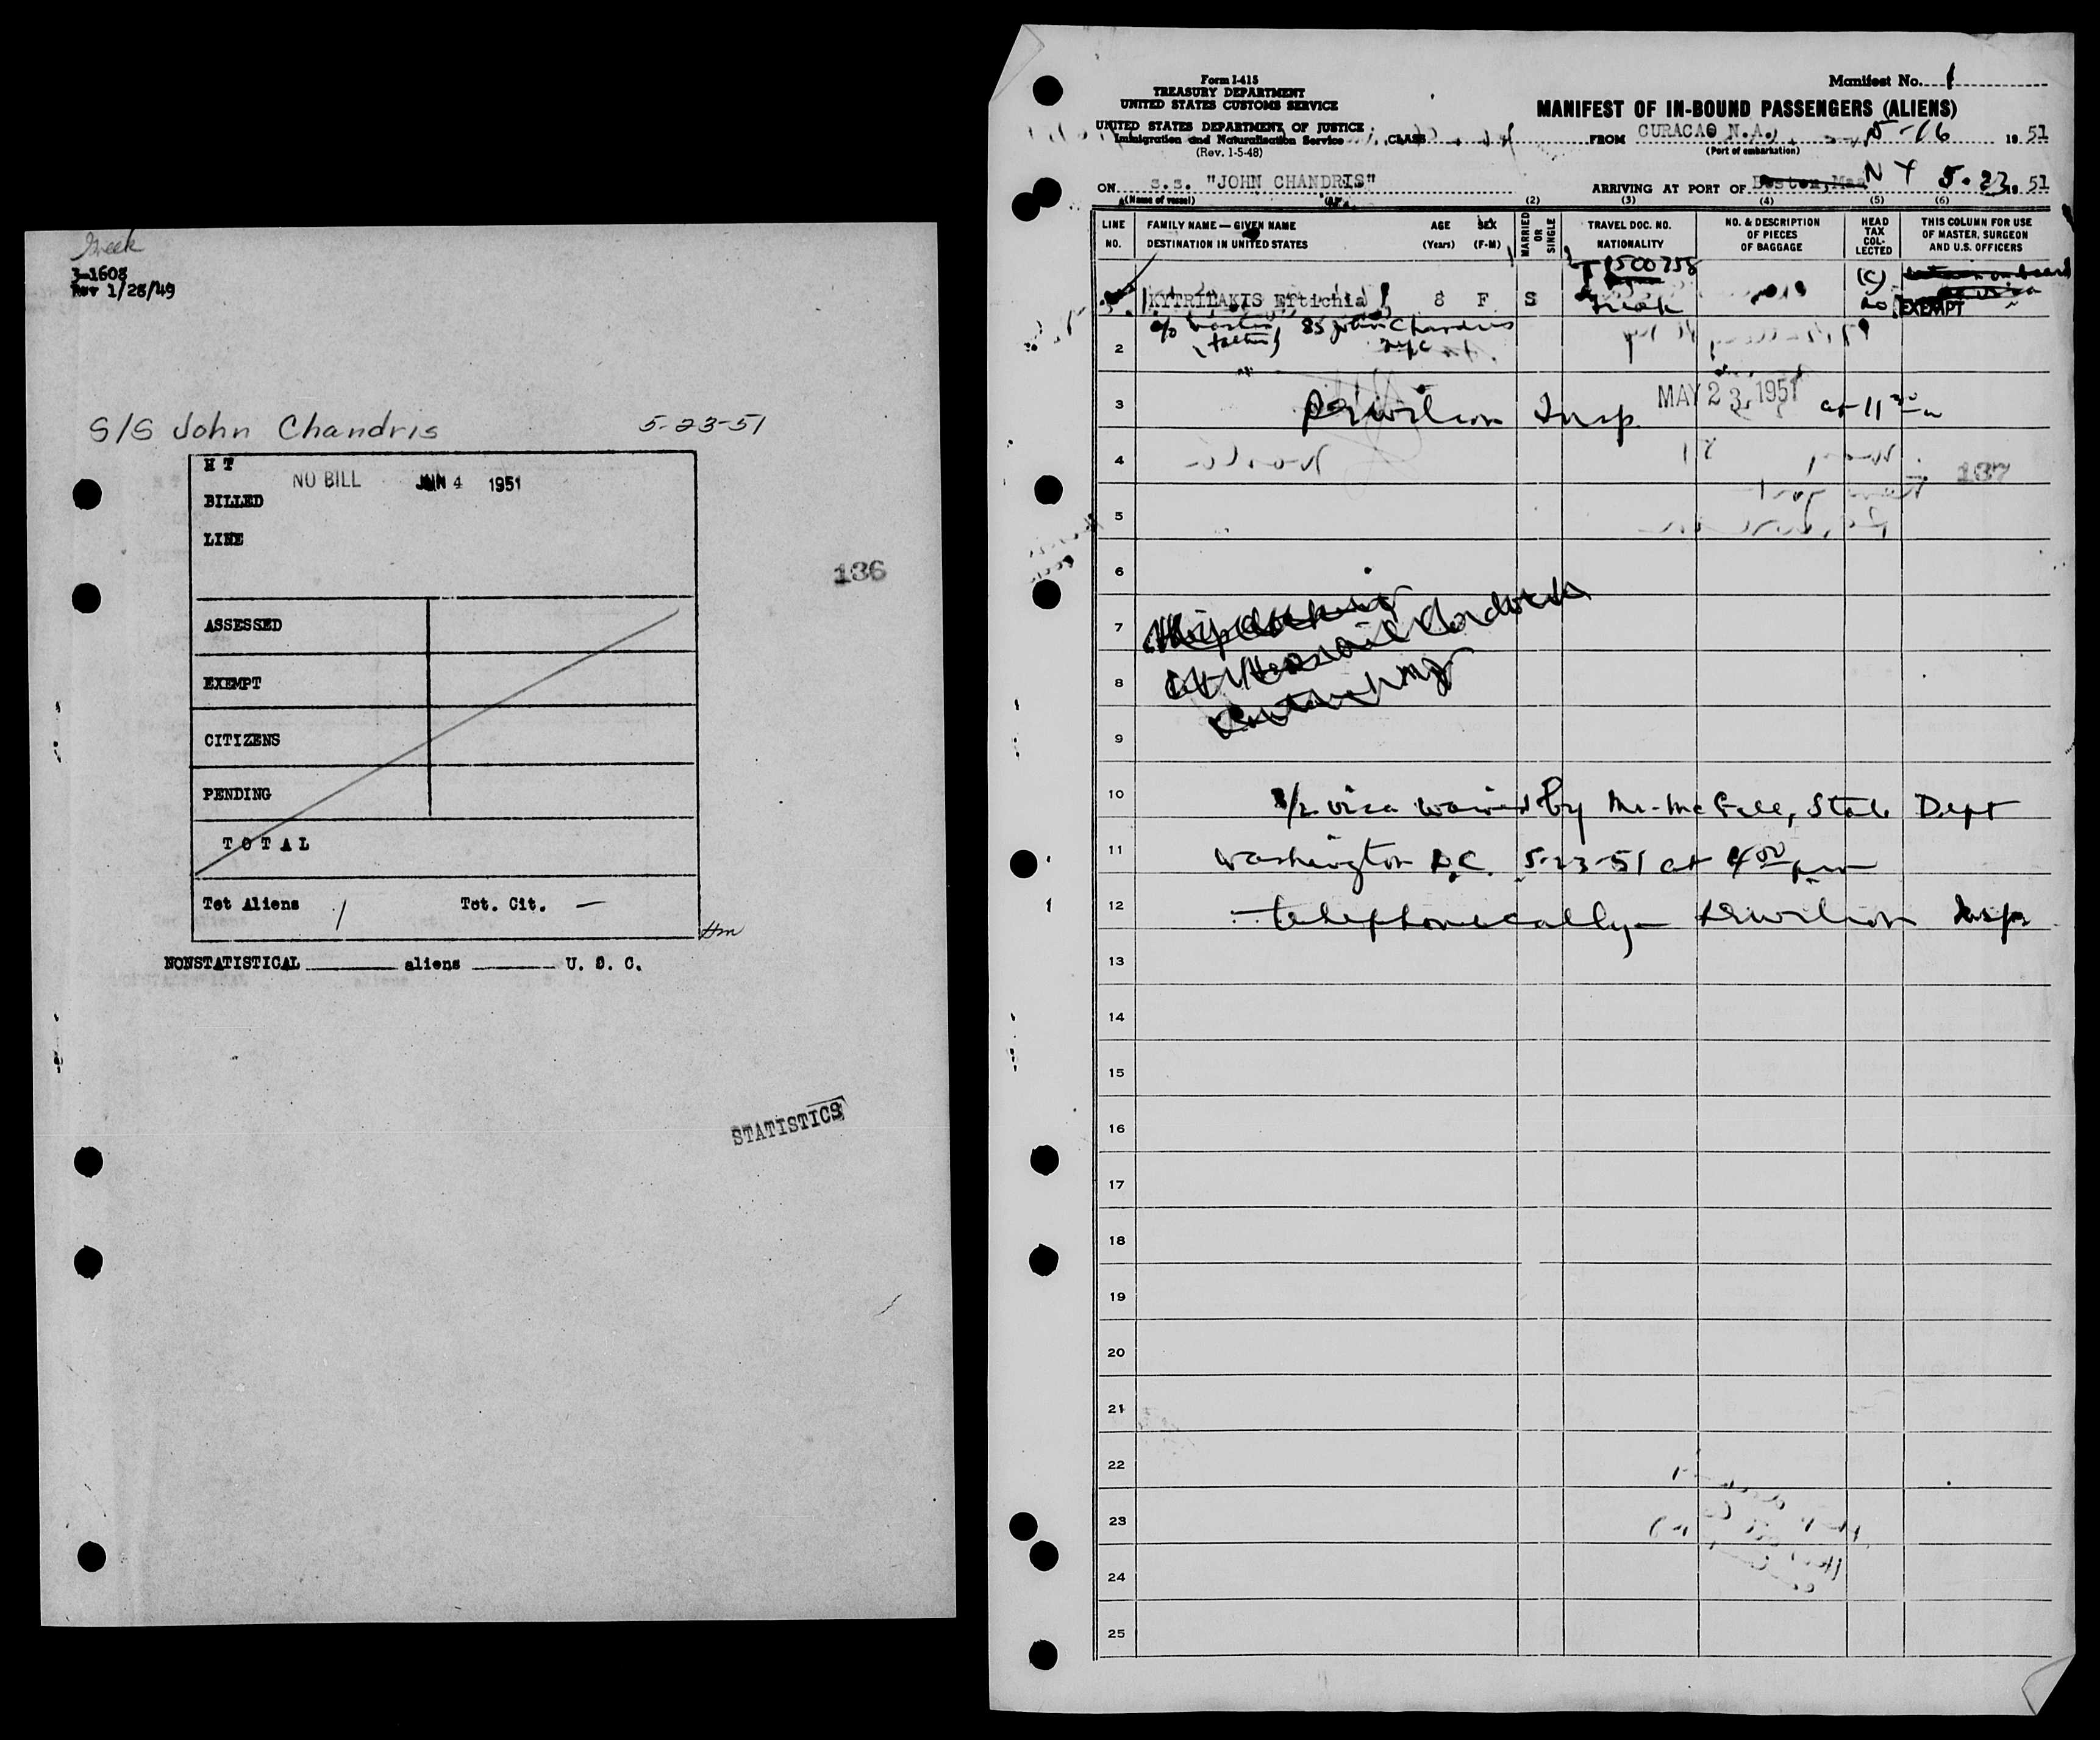 Greek
3-1608
Rev 1/28/49
S/S John Chandris 5-23-51
H T
NO BILL JUN 4 1951
BILLED
LINE
136
ASSESSED
EXEMPT
CITIZENS
PENDING
TOTAL
Tot Aliens 1 Tot. Cit. —
Hm
NONSTATISTICAL aliens U. S. C.
STATISTICS
Form I-415
TREASURY DEPARTMENT
UNITED STATES CUSTOMS SERVICE
UNITED STATES DEPARTMENT OF JUSTICE
Immigration and Naturalization Service
(Rev. 1-5-48)
Manifest No. 1
MANIFEST OF IN-BOUND PASSENGERS (ALIENS)
CLASS FROM CURACAO N.A., 5-16 1951
(Port of embarkation)
ON s.s. "JOHN CHANDRIS" ARRIVING AT PORT OF Boston, Mas N Y 5-23 1951
(Name of vessel)
(1) (2) (3) (4) (5) (6)
LINE NO.
FAMILY NAME — GIVEN NAME
DESTINATION IN UNITED STATES
AGE (Years)
SEX (F-M)
MARRIED OR SINGLE
TRAVEL DOC. NO.
NATIONALITY
NO. & DESCRIPTION OF PIECES OF BAGGAGE
HEAD TAX COLLECTED
THIS COLUMN FOR USE OF MASTER, SURGEON AND U.S. OFFICERS
T 1500758
KYTRILAKIS Eftichia 8 F S Greek
(C)
no EXEMPT
2 c/o Master SS John Chandris
(father) NYC
3 Insp. MAY 23 1951 at 11
4
137
5
6
7
8
9
10 visa waived by Mr. State Dept
11 Washington D.C. 5-23-51 at 4 00 pm
12 telephonically Insp
13
14
15
16
17
18
19
20
21
22
23
24
25